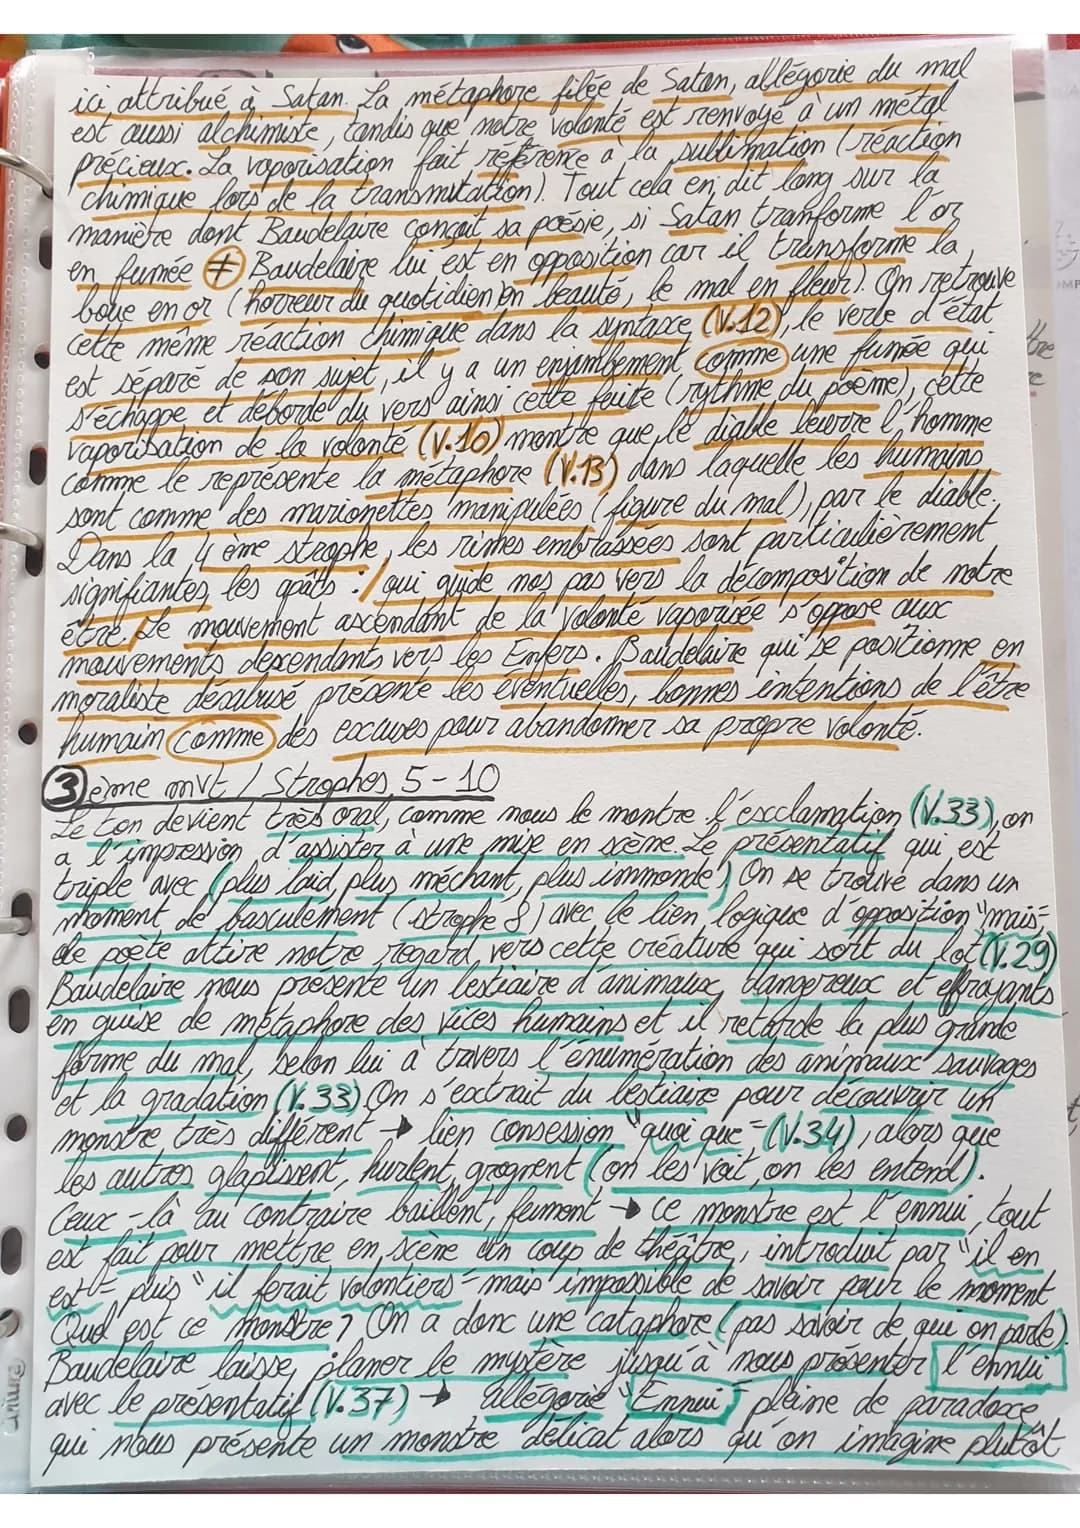 ici attribué à Satan. La métaphore filée de Satan, allégorie du mal
est aussi alchimiste, tandis que notre volonté est renvoyé à un métal
précieux. La vaporisation fait référence à la sublimation (réaction
chimique lors de la transmutation). Tout cela en dit long sur la
manière dont Baudelaire conçoit sa poésie, si Satan tranforme l'or
en fumée ≠ Baudelaire lui est en opposition car il transforme la
boue en or (horreur du quotidien en beauté, le mal en fleur). On retrouve
cette même réaction chimique dans la syntaxe (V.12), le verbe d'état
est séparé de son sujet, il y a un enjambement comme une fumée qui
s'échappe et déborde du vers ainsi cette fuite (rythme du poème), cette
vaporisation de la volonté (V.10) montre que le diable leurre l'homme
comme le représente la métaphore (V.13) dans laquelle les humains
sont comme des marionettes manipulées (figure du mal), par le diable.
Dans la 4 ème strophe, les rimes embrassées sont particulièrement
signifiantes, les goûts : / qui guide nos pas vers la décomposition de notre
être. Le mouvement ascendant de la volonté vaporisée s'oppose aux
mouvements descendants vers les Enfers. Baudelaire qui se positionne en
moraliste désabusé présente les éventuelles, bonnes intentions de l'être
humain comme des excuses pour abandonner sa propre volonté.
3 ème mvt / Strophes 5 - 10
Le ton devient très oral, comme nous le montre l'esclamation (V.33), on
a l'impression d'assister à une mise en scène. Le présentatif qui est
triple avec (plus laid, plus méchant, plus immonde) On se trouve dans un
moment de basculement (strophe 8) avec le lien logique d'opposition "mais"
de poète attire notre regard vers cette créature qui sort du lot (V.29)
Baudelaire nous présente un bestiaire d'animaux dangereux et effrayants
en guise de métaphore des vices humains et il retarde la plus grande
forme du mal, selon lui à travers l'énumération des animaux sauvages
et la gradation (V.33) On s'extrait du bestiaire pour découvrir un
monstre très différent → lien consession "quoi que" (V.34), alors que
les autres glapissent, hurlent, grognent (on les voit, on les entend).
Ceux-là au contraire baillent, fument → ce monstre est l'ennui, tout
est fait pour mettre en scène un coup de théâtre, introduit par "il en
est" puis "il ferait volontiers" mais impossible de savoir pour le moment
Quel est ce monstre? On a donc une cataphore (pas savoir de qui on parle).
Baudelaire laisse planer le mystère jusqu'à nous présenter l'ennui
avec le présentatif (V.37) → allégorie "Ennui" pleine de paradoxe
qui nous présente un monstre délicat alors qu'on imagine plutôt